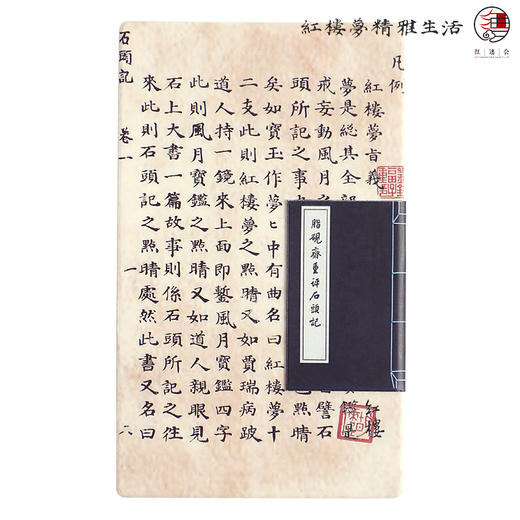 紅樓夢精雅生活
红迷会
凡例
紅樓夢旨義
紅樓
夢是總其全部
是
戒妄動風月之
譬石
頭所記之事
點睛
矣如寶玉作夢ヒ中有曲名曰紅樓夢十
二支此則紅樓夢之點睛又如賈瑞病跛
道人持一鏡來上面即鏨風月寶鑑四字
此則風月寶鑑之點睛又如道人親眼見
石上大書一篇故事則係石頭所記之往
來此則石頭記之點睛處然此書又名曰
石頭記 卷一 一
脂硯齋重評石頭記